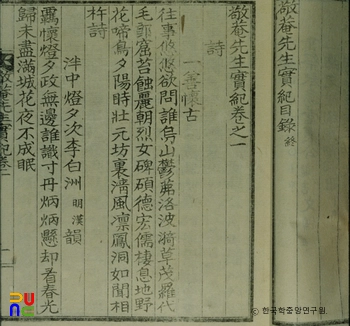 敬菴先生實紀目錄 終
敬菴先生實紀卷之一
詩
一善懷古
往事悠悠欲問誰烏山鬱茀洛波漪草茂羅代
毛郞窟苔蝕麗朝烈女碑碩德宏儒棲息地野
花啼鳥夕陽時壯元坊裏淸風凛鳳洞如聞相
杵詩
泮中燈夕次李白洲 明漢 韻
羈懷燈夕政無邊誰識寸丹炳炳懸却看春光
歸未盡滿城花夜不成眠
敬菴先生實紀卷一
한국학중앙연구원